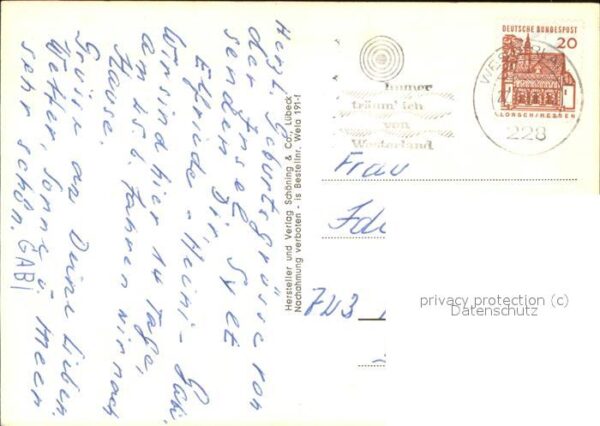 Herzl. Geburtsgrüsse von
der Insel Sylt
senden Dir
Elfriede - Heini - Gabi
Wir sind hier 14 Tage,
am 25.6. fahren wir nach
Hause.
Grüße an Deine Lieben
Wetter, Sonne u. Meer
sehr schön. GABI
Hersteller und Verlag Schöning & Co., Lübeck
Nachahmung verboten - is Bestellnr. Wela 191-f
Immer
träum' ich
von
Westerland
228
DEUTSCHE BUNDESPOST
20
LORSCH/HESSEN
Frau
743
privacy protection (c)
Datenschutz